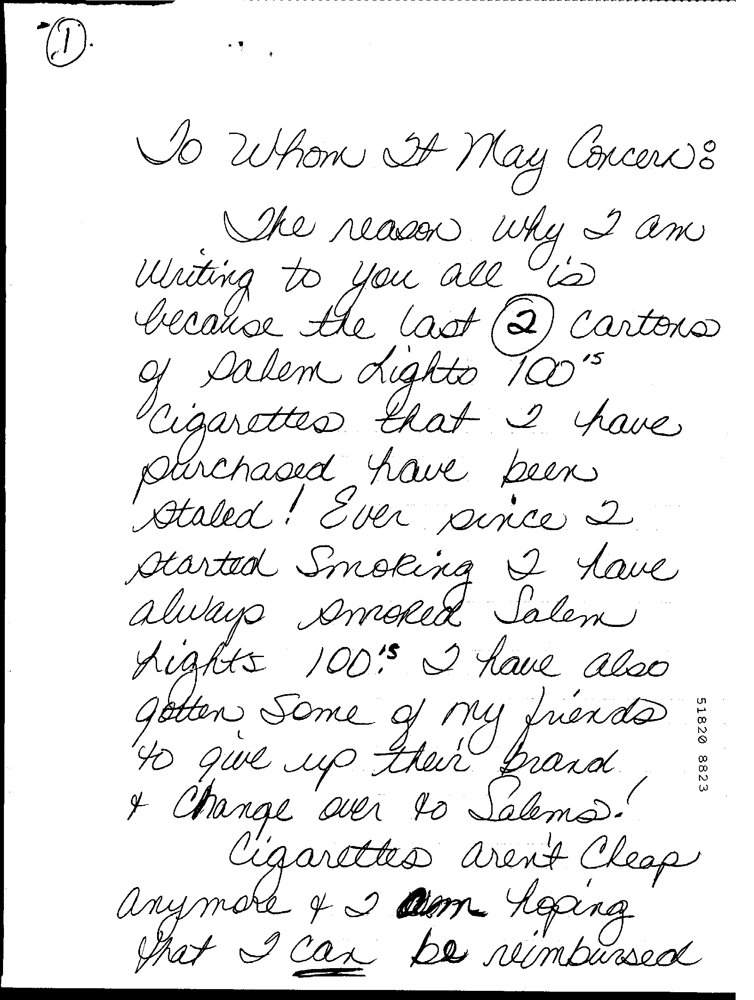 1.
To Whom It May Concern:
The reason why I am
writing to you all is
because the last 2 cartons
of Salem Lights 100's
cigarettes that I have
purchased have been
staled! Ever since I
started Smoking I have
always smoked Salem
Lights 100's. I have also
gotten some of my friends
to give up their brand
& Change over to Salems!
Cigarettes aren't Cheap
anymore & I am hoping
that I can be reimbursed
51820 8823